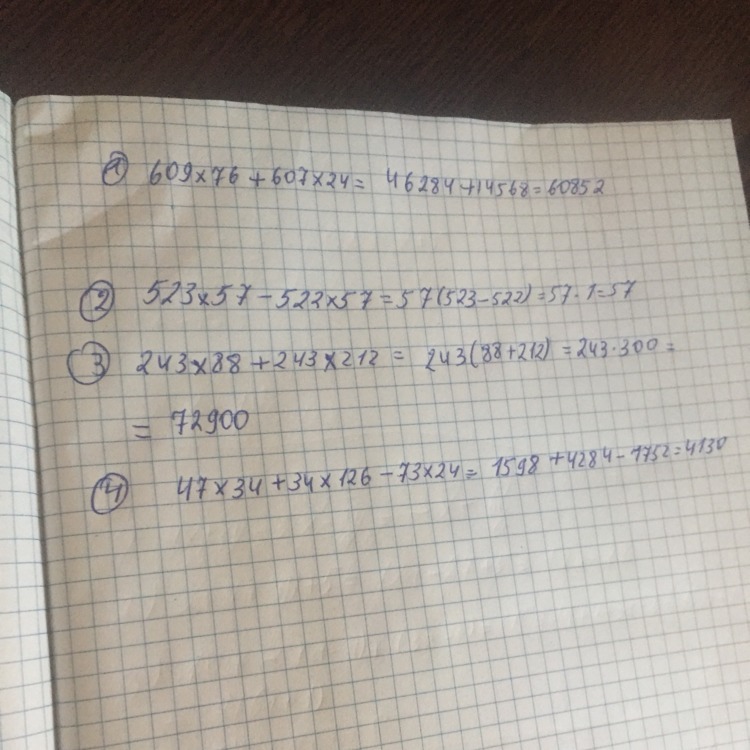 ① 609×76+607×24= 46284+14568=60852
② 523×57-522×57=57(523-522)=57·1=57
③ 243×88+243×212= 243(88+212)=243·300=
= 72900
④ 47×34+34×126-73×24= 1598+4284-1752=4130